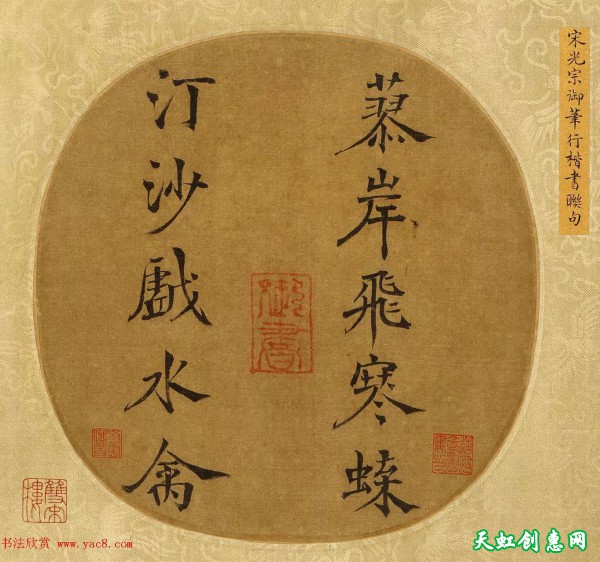 宋光宗御筆行楷書聯句
蓼岸飛寒蝶
汀沙戲水禽
御書
雙宋樓
书法欣赏 www.yac8.com
天虹创惠网